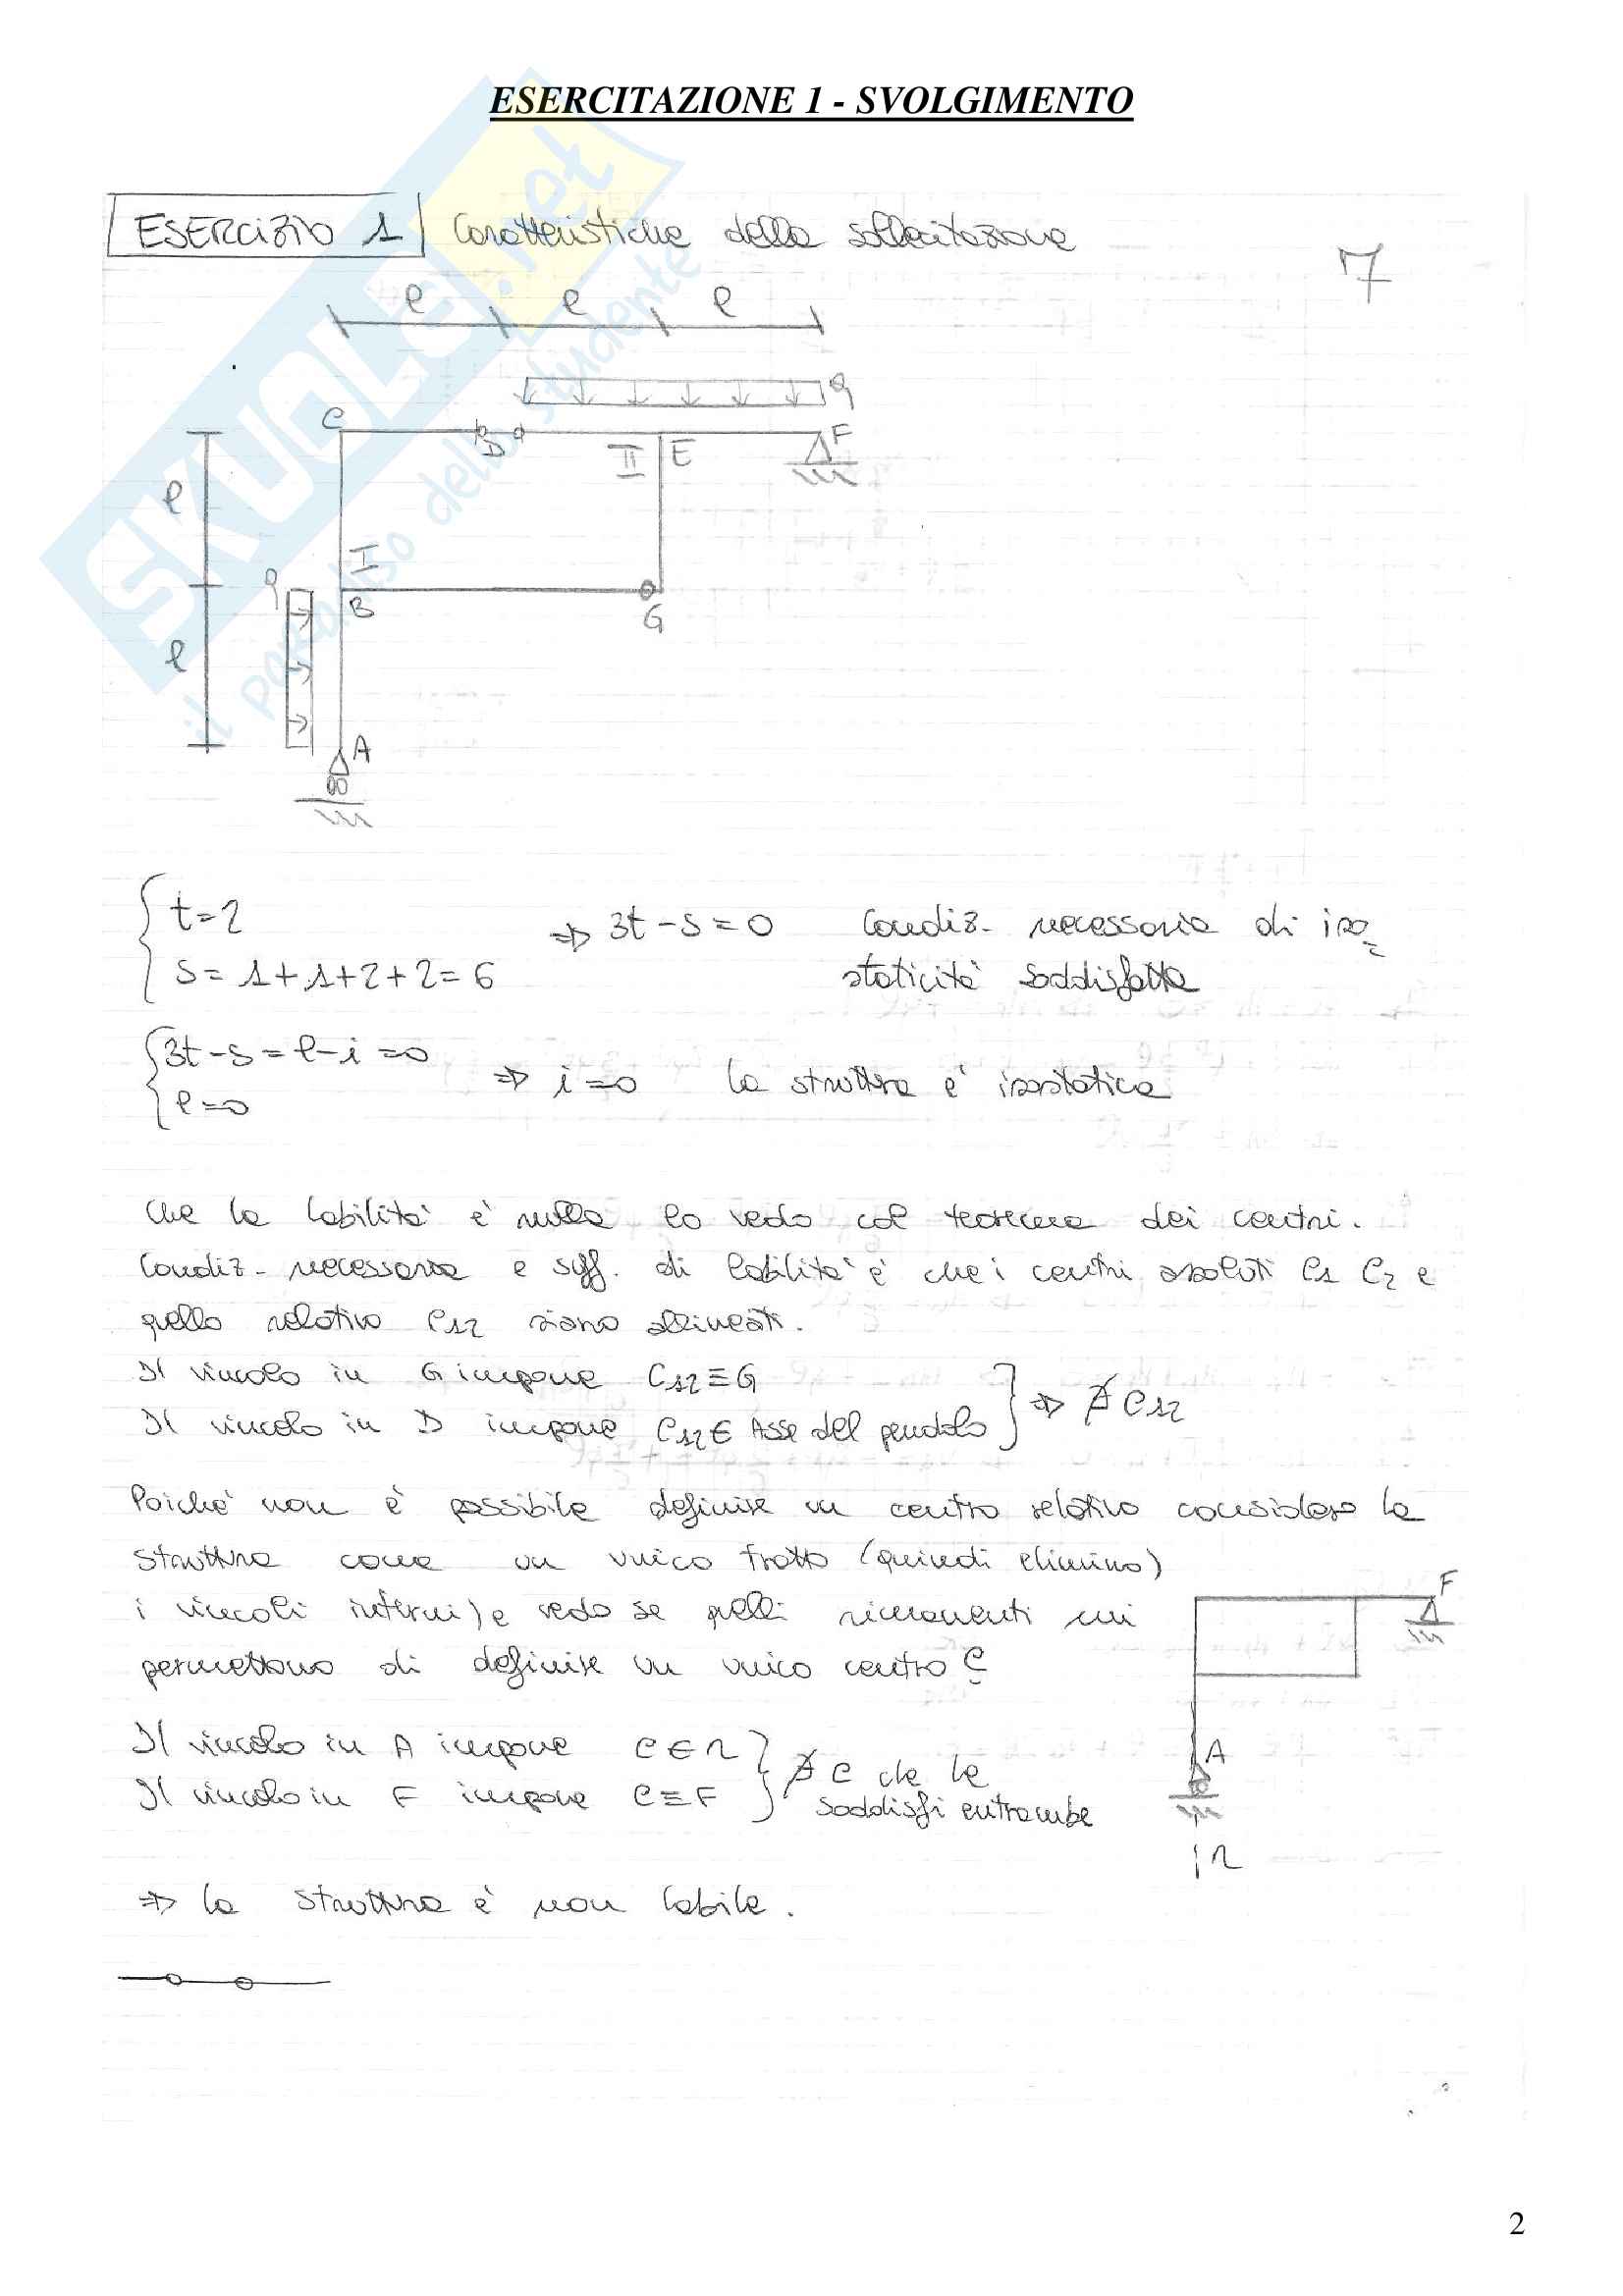 ESERCITAZIONE 1 - SVOLGIMENTO
ESERCIZIO 1 Caratteristiche della sollecitazione
7
l l l
q
C D II E F
l
I
q B G
l
A
t=2 => 3t-s=0 Condiz. necessaria di iso=
s=1+1+2+2=6 staticità soddisfatta
3t-s=l-i=0 => i=0 la struttura è isostatica
l=0
Che la labilità è nulla lo vedo col teorema dei centri.
Condiz. necessaria e suff. di labilità è che i centri assoluti C1 C2 e
quello relativo C12 siano allineati.
Il vincolo in G impone C12≡G
Il vincolo in D impone C12∈ Asse del pendolo => ∄ C12
Poiché non è possibile definire un centro relativo considero la
struttura come un unico tratto (quindi elimino)
i vincoli interni) e vedo se quelli rimanenti mi
permettono di definire un unico centro C
F
Il vincolo in A impone C∈r
Il vincolo in F impone C≡F ∄ C che le
soddisfi entrambe
A
r
=> la struttura è non labile.
2
SKUOLA.net
il paradiso dello studente